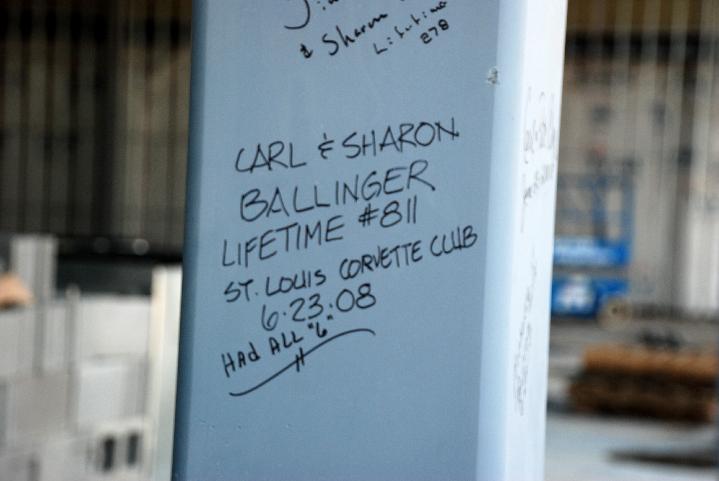 & Sharon
Lifetime
278
CARL & SHARON
BALLINGER
LIFETIME #811
ST. LOUIS CORVETTE CLUB
6.23.08
HAd ALL "6"